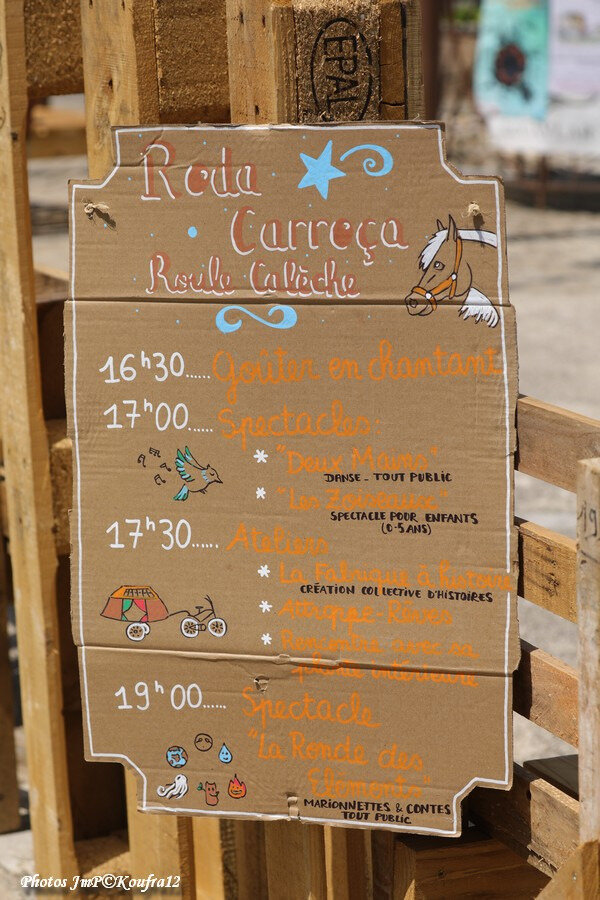 EPAL
Roda
Carroça
Roule Calèche
16h30..... Goûter en chantant
17h00..... Spectacles:
* "Deux Mains"
DANSE - TOUT PUBLIC
* "Les Zoiseaux"
SPECTACLE POUR ENFANTS
(0-5 ANS)
17h30..... Ateliers
* La Fabrique à histoire
CRÉATION COLLECTIVE D'HISTOIRES
* Attrapez-Rêves
* Rencontre avec sa
plante intérieure
19h00..... Spectacle
"La Ronde des
Eléments"
MARIONNETTES & CONTES
TOUT PUBLIC
Photos JmP©Koufra12